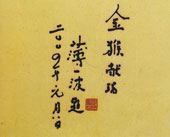 金猴献瑞
薄一波题
二〇〇四年元月八日